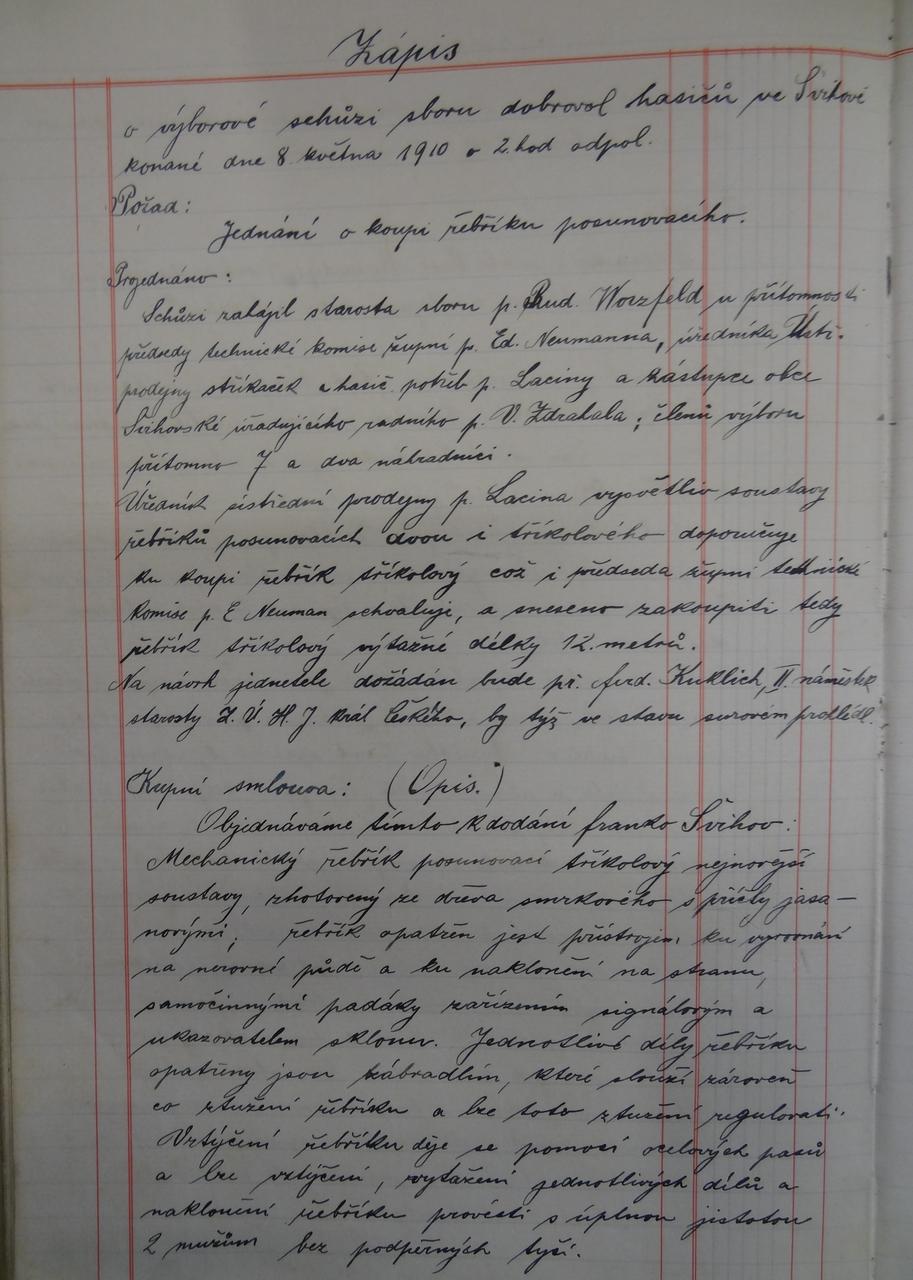 Zápis
o výborové schůzi sboru dobrovol hasičů ve Švihově
konané dne 8 května 1910 o 2.hod odpol.
Pořad:
Jednání o koupi řebříku posunovacího.
Projednáno:
Schůzi zahájil starosta sboru p. Rud. Worzfeld u přítomnosti
předsedy technické komise župní p. Ed. Neumanna, úředníka Ústř.
prodejny stříkaček a hasič. potřeb p. Laciny a zástupce obce
Švihovské úřadujícího radního p. V. Zdrahala; členů výboru
přítomno 7 a dva náhradníci.
Úředník ústřední prodejny p. Lacina vysvětliv soustavy
řebříků posunovacích dvou i tříkolového doporučuje
ku koupi řebřík tříkolový což i předseda župní technické
komise p. E Neuman schvaluje, a sneseno zakoupiti tedy
řebřík tříkolový výtažné délky 12. metrů.
Na návrh jednatele dožádán bude př. Ferd. Kuklich, II. náměstek
starosty Z. Ú. H. J. král Českého, by týž ve stavu surovém prohlédl.
Kupní smlouva: (Opis.)
Objednáváme tímto k dodání franko Švihov:
Mechanický řebřík posunovací tříkolový nejnovější
soustavy, zhotovený ze dřeva smrkového s příčly jasa-
novými; řebřík opatřen jest přístrojem ku vyrovnání
na nerovné půdě a ku naklonění na stranu,
samočinnými padáky zařízením signálovým a
ukazovatelem sklonu. Jednotlivé díly řebříku
opatřeny jsou zábradlím, které slouží zároveň
co ztužení řebříku a lze toto ztužení regulovati.
Vztýčení řebříku děje se pomocí ocelových pasů
a lze vztýčení, vytažení jednotlivých dílů a
naklonění řebříku provésti s úplnou jistotou
2 mužům bez podpěrných tyčí.